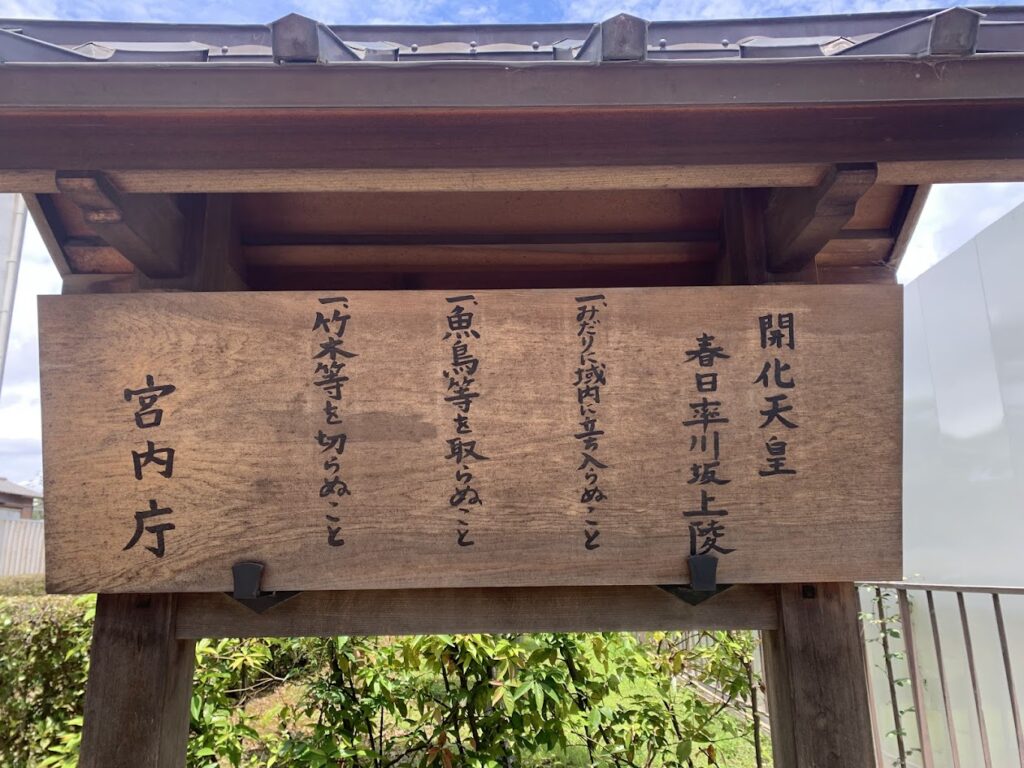 開化天皇
春日率川坂上陵
一、みだりに域内に立ち入らぬこと
一、魚鳥等を取らぬこと
一、竹木等を切らぬこと
宮内庁